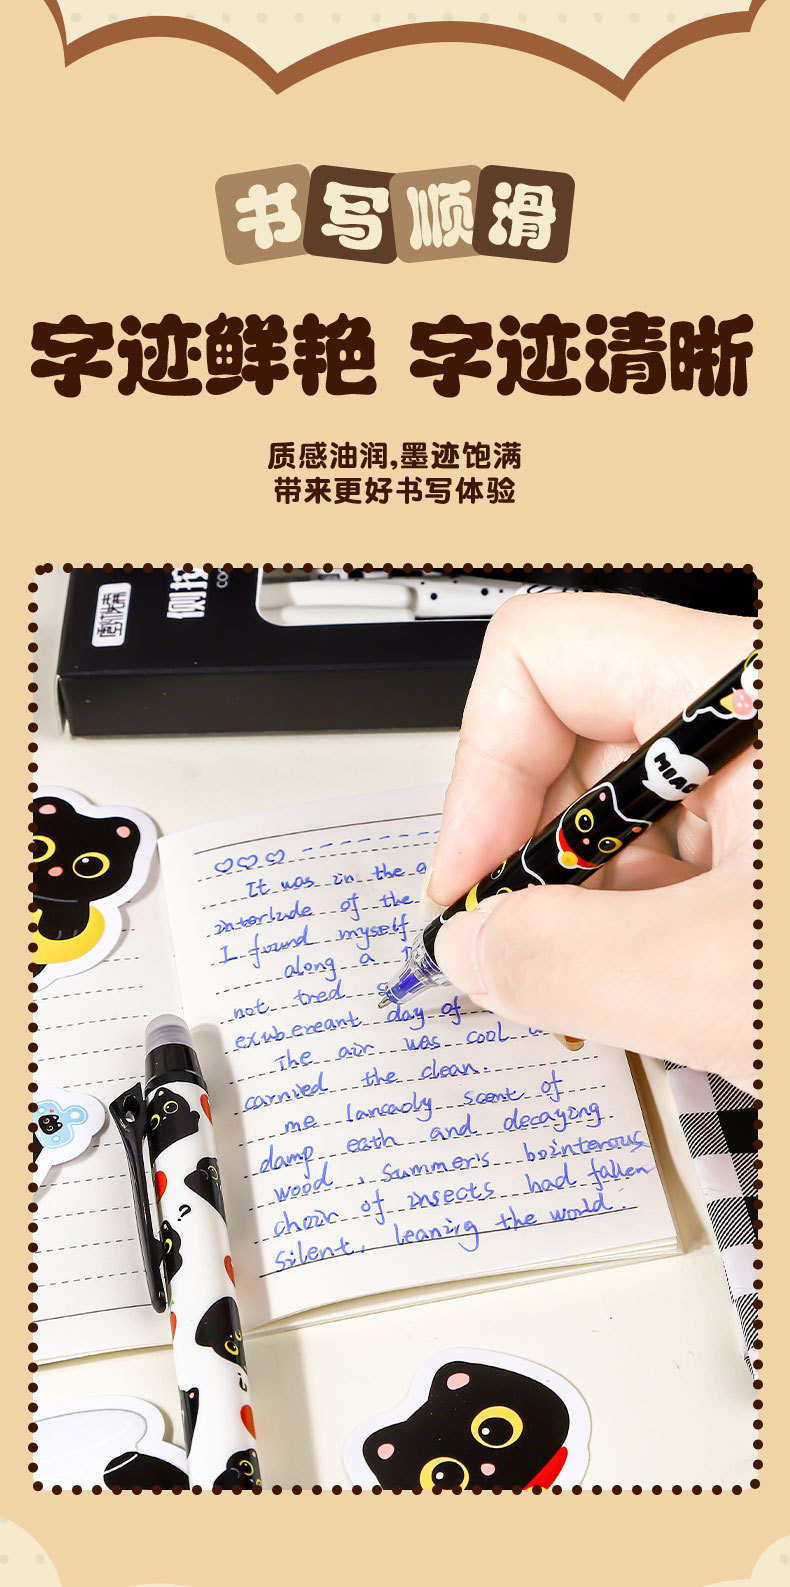 书写顺滑
字迹鲜艳 字迹清晰
质感油润,墨迹饱满
带来更好书写体验
侧按
MIAO
It was in the a
interlude of the
I found myself
along a
not tred
exubereant day of
The air was cool
carnied the clean.
me lancaoly scent of
damp eath and decaying
wood , summer's bointerous
choir of insects had fallen
silent, leaning the world.